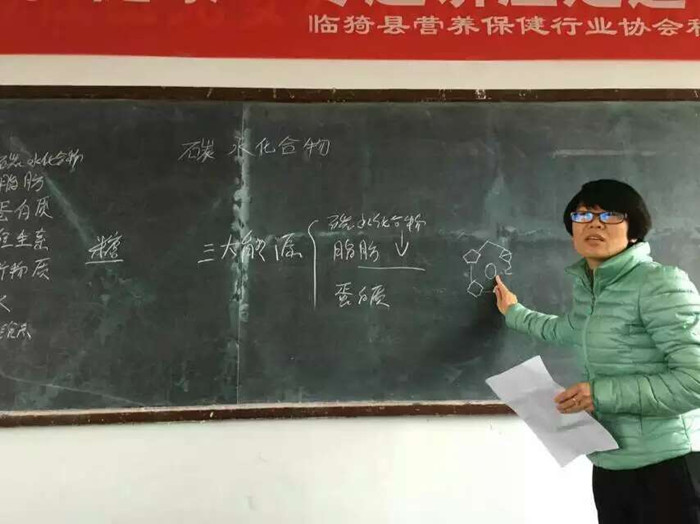 临猗县营养保健行业协会
碳水化合物
碳水化合物
脂肪
蛋白质
维生素
矿物质
水
糖
三大能源
碳水化合物
脂肪
蛋白质